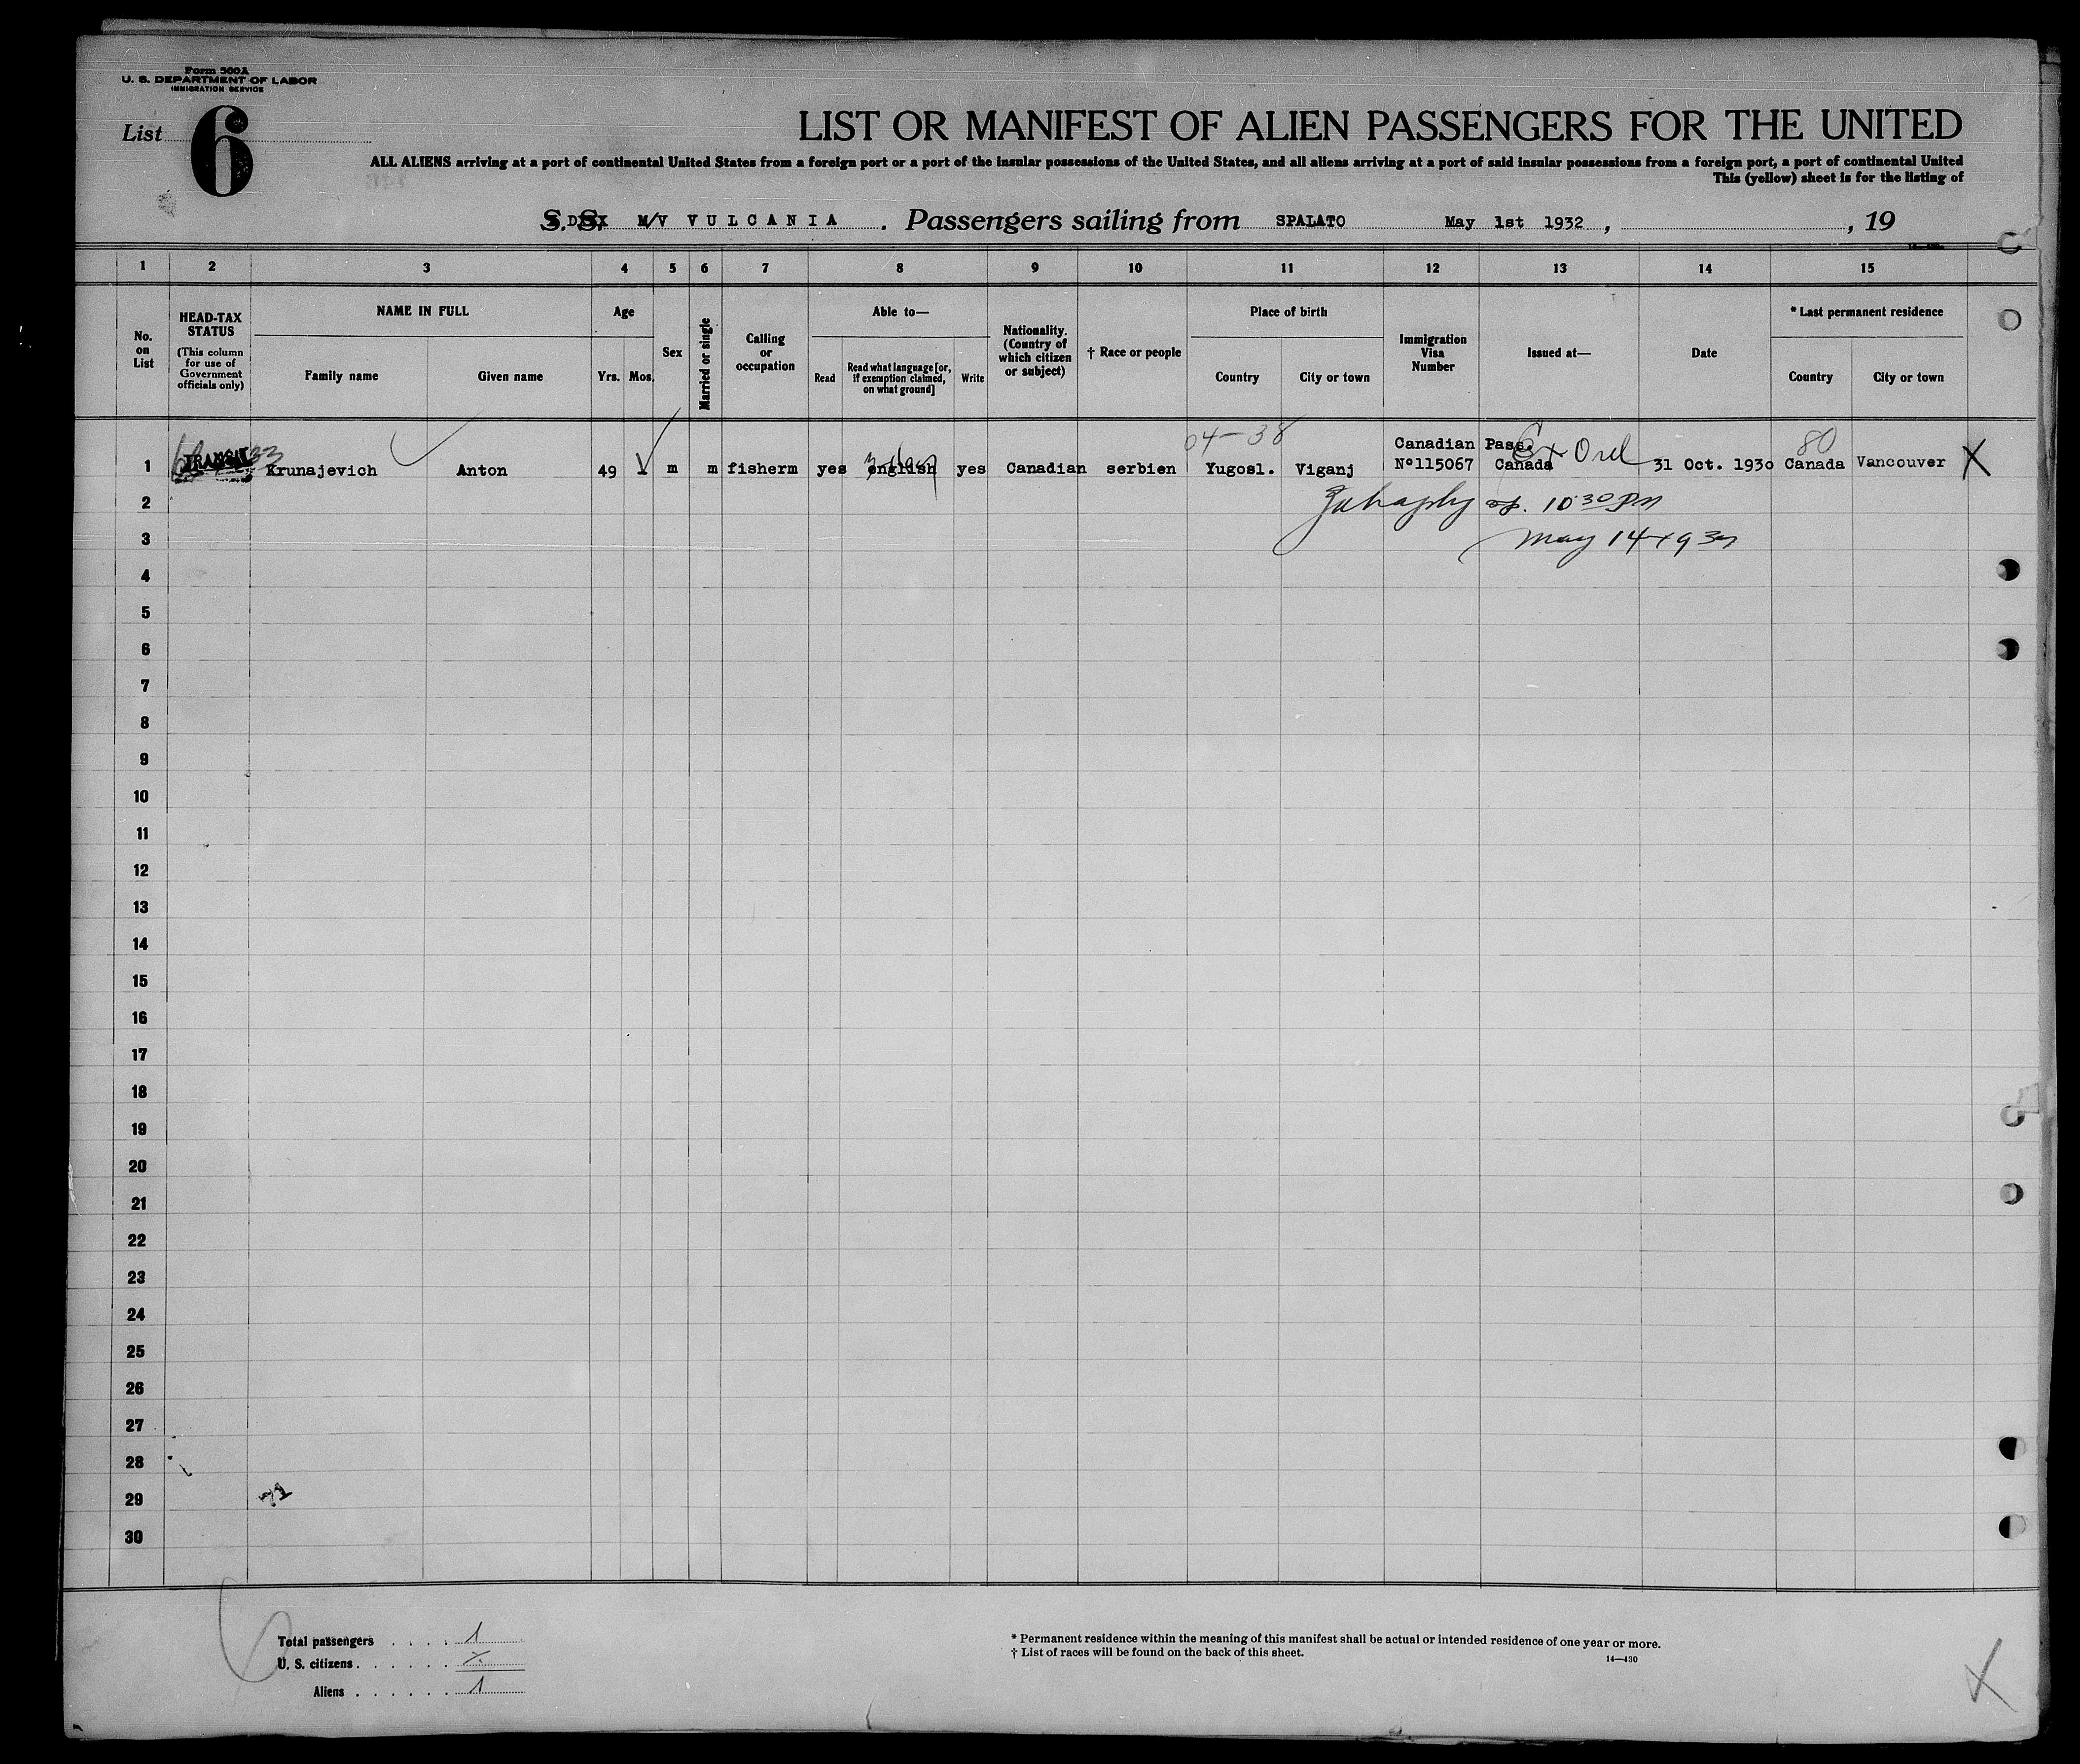 Form 500A
U. S. DEPARTMENT OF LABOR
IMMIGRATION SERVICE
List 6
LIST OR MANIFEST OF ALIEN PASSENGERS FOR THE UNITED
ALL ALIENS arriving at a port of continental United States from a foreign port or a port of the insular possessions of the United States, and all aliens arriving at a port of said insular possessions from a foreign port, a port of continental United
This (yellow) sheet is for the listing of
S. S. M/V VULCANIA . Passengers sailing from SPALATO May 1st 1932 , , 19
1 2 3 4 5 6 7 8 9 10 11 12 13 14 15
No. on List
HEAD-TAX STATUS
(This column for use of Government officials only)
NAME IN FULL
Family name Given name
Age
Yrs. Mos.
Sex
Married or single
Calling or occupation
Able to—
Read
Read what language [or, if exemption claimed, on what ground]
Write
Nationality. (Country of which citizen or subject)
† Race or people
Place of birth
Country City or town
Immigration Visa Number
Issued at—
Date
* Last permanent residence
Country City or town
04-38 Canadian Pass. 80
1 TRANSIT Krunajevich Anton 49 m m fisherm yes english yes Canadian serbien Yugosl. Viganj Nº115067 Canada 31 Oct. 1930 Canada Vancouver X
2 10 30 PM
3 May 14
4
5
6
7
8
9
10
11
12
13
14
15
16
17
18
19
20
21
22
23
24
25
26
27
28
29
30
Total passengers . . . . 1
U. S. citizens . . . . . .
Aliens . . . . . . 1
* Permanent residence within the meaning of this manifest shall be actual or intended residence of one year or more.
† List of races will be found on the back of this sheet.
14—430
X